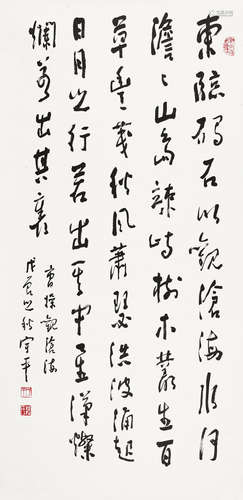 東臨碣石以觀滄海水何
澹々山島竦峙樹木叢生百
草豐茂秋風蕭瑟洪波涌起
日月之行若出其中星漢燦
爛若出其裏
曹操觀滄海
戊之秋平